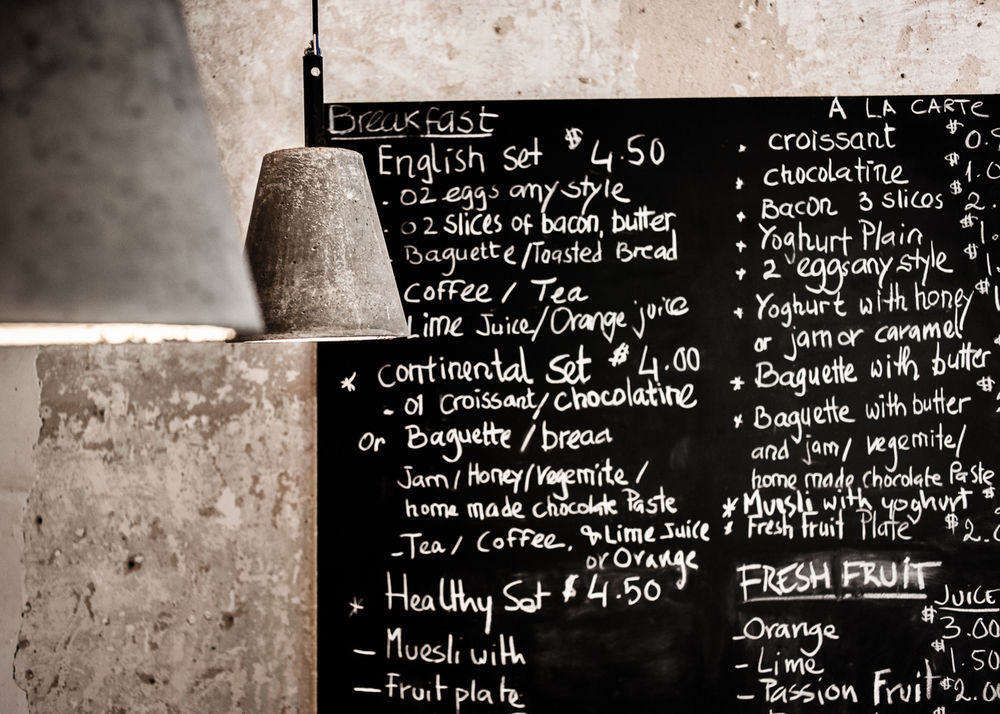 Breakfast
English set $ 4.50
. 02 eggs any style
. 02 slices of bacon, butter
Baguette/Toasted Bread
coffee / Tea
Lime Juice/Orange juice
* continental set $ 4.00
- 01 Croissant/chocolatine
or Baguette / bread
Jam/Honey/Vegemite /
home made chocolate Paste
- Tea / Coffee, & Lime Juice
or Orange
* Healthy Set $ 4.50
- Muesli with
- fruit plate
A LA CARTE
croissant $ 0.
chocolatine $ 1.0
Bacon 3 slices $ 2.
Yoghurt Plain $ 1.
2 eggs any style $ 1.
* Yoghurt with honey $
or jam or caramel
* Baguette with butter
* Baguette with butter $
and jam/ vegemite/
home made chocolate Paste
* Muesli with yoghurt $
* Fresh fruit Plate $ 2.0
FRESH FRUIT
JUICE
- Orange $ 3.00
- Lime $ 1.50
- Passion Fruit $ 2.00